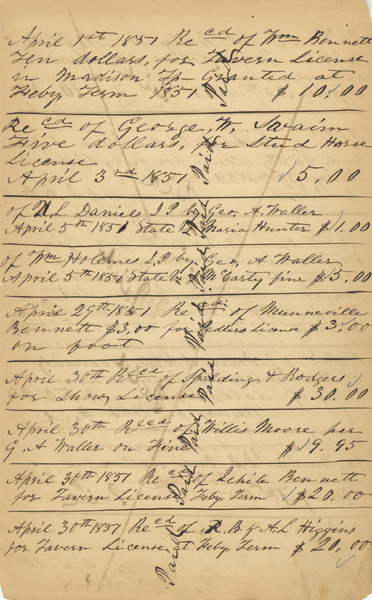 April 1st 1851 Recd of Wm Bennett
Ten dollars, for Tavern License
in Madison Tp Granted at
Feby Term 1851 $10.00
Paid
Recd of George W. Swaim
Five dollars, for Stud Horse
License
April 3rd 1851 5.00
Paid
of L Daniels J P by Geo. A. Waller
April 5th 1851 State Vs Maria Hunter $1.00
Paid
of Wm Holemes J.P by Geo. A Waller
April 5th 1851 State Vs McCarty fine $5.00
Paid
April 29th 1851 Recd of Munneville
Bennett $3.00 for Pedlers License $3.00
on foot
Paid
April 30th Recd of Spaldings & Rodgers
for Show License $30.00
Paid
April 30th Recd of Willis Moore per
G. A Waller on Fine $19.95
Paid
April 30th 1851 Recd of Bennett
for Tavern License Feby Term $20.00
Paid
April 30th 1851 Recd of R. B & A. L Higgins
for Tavern License at Feby Term $20.00
Paid